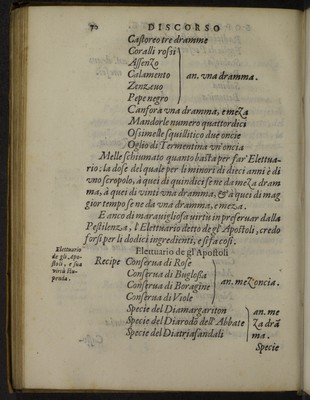 70 DISCORSO
Castoreo tre dramme
Coralli rossi
Assenzo
Calamento an. vna dramma.
Zenzauo
Pepe negro
Canfora vna dramma, e meza
Mandorle numero quattordici
Ossimelle squillitico due oncie
Oglio di Termentina vn'oncia
Melle schiumato quanto basta per far' Elettua-
rio; la dose del quale per li minori di dieci anni è di
vno scropolo, à quei di quindici se ne da meza dram
ma, à quei di vinti vna dramma, & à quei di mag
gior tempo se ne da vna dramma, e meza.
E anco di marauigliosa virtù in preseruar dalla
Pestilenza, l'Elettuario detto de gl'Apostoli, credo
forsi per li dodici ingredienti, e si fa così.
Elettuario
de gli Apo-
stoli, e sua
virtù stu-
penda.
Elettuario de gl'Apostoli
Recipe Conserua di Rose
Conserua di Buglossa
Conserua di Boragine an. mez'oncia.
Conserua di Viole
Specie del Diamargariton an. me
Specie del Diarodo dell'Abbate za drã
Specie del Diatriasandali ma.
Specie